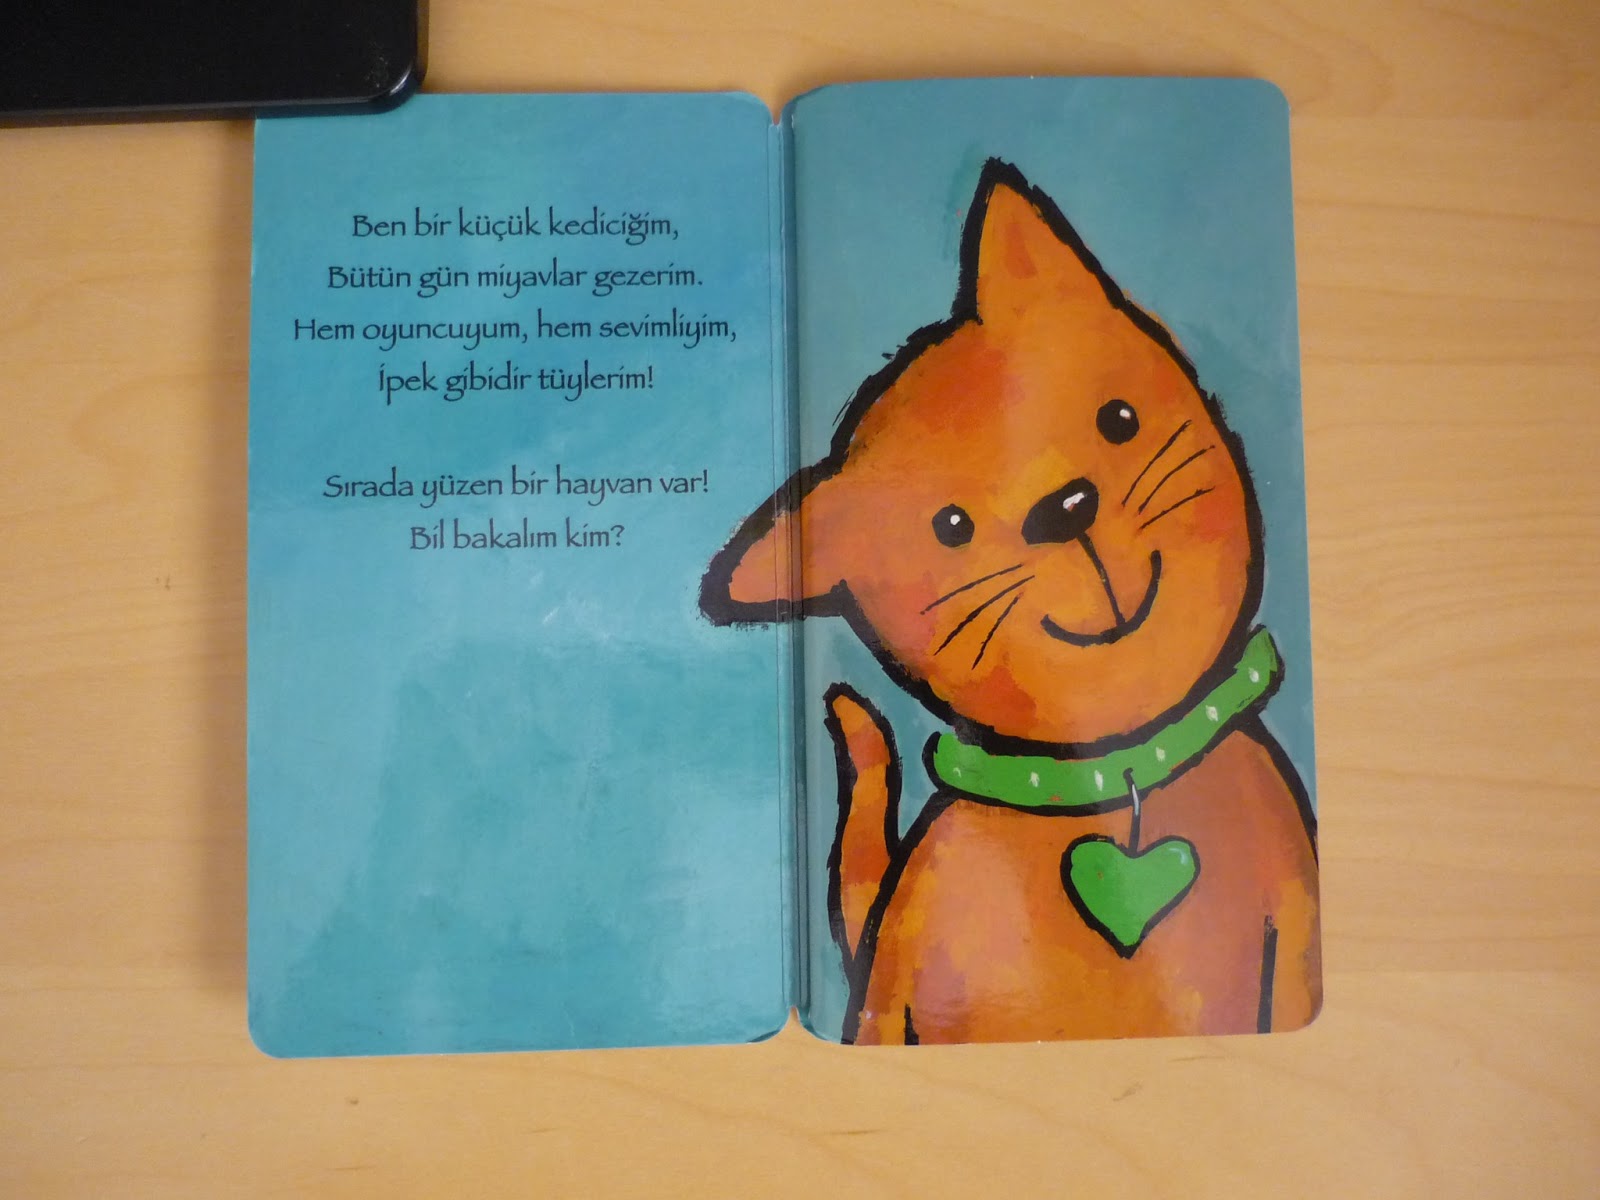 Ben bir küçük kediciğim,
Bütün gün miyavlar gezerim.
Hem oyuncuyum, hem sevimliyim,
İpek gibidir tüylerim!
Sırada yüzen bir hayvan var!
Bil bakalım kim?